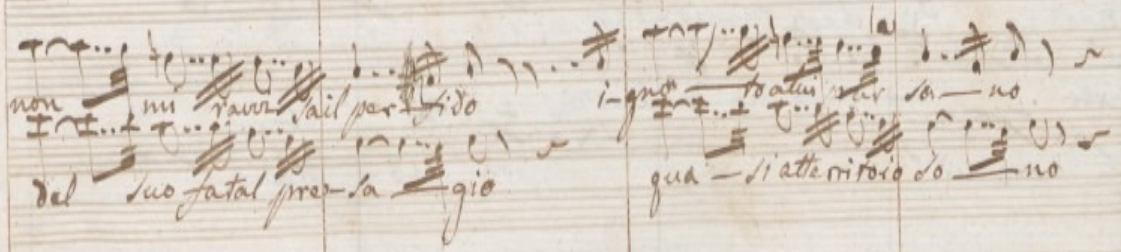 non mi ravvi sail per-fido i-gno-to a lui pur so-no
del suo fatal pre-sa-gio qua-si atterrito io so-no